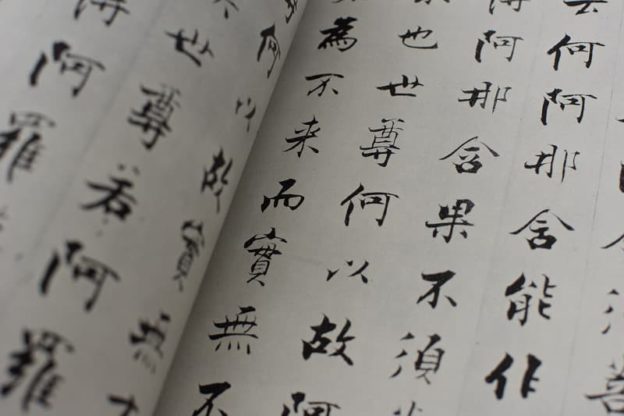 云何阿那含能作
得阿那含果不須
也世尊何以故阿
為不来而實無不
何以故實無
世尊若阿羅
得阿羅